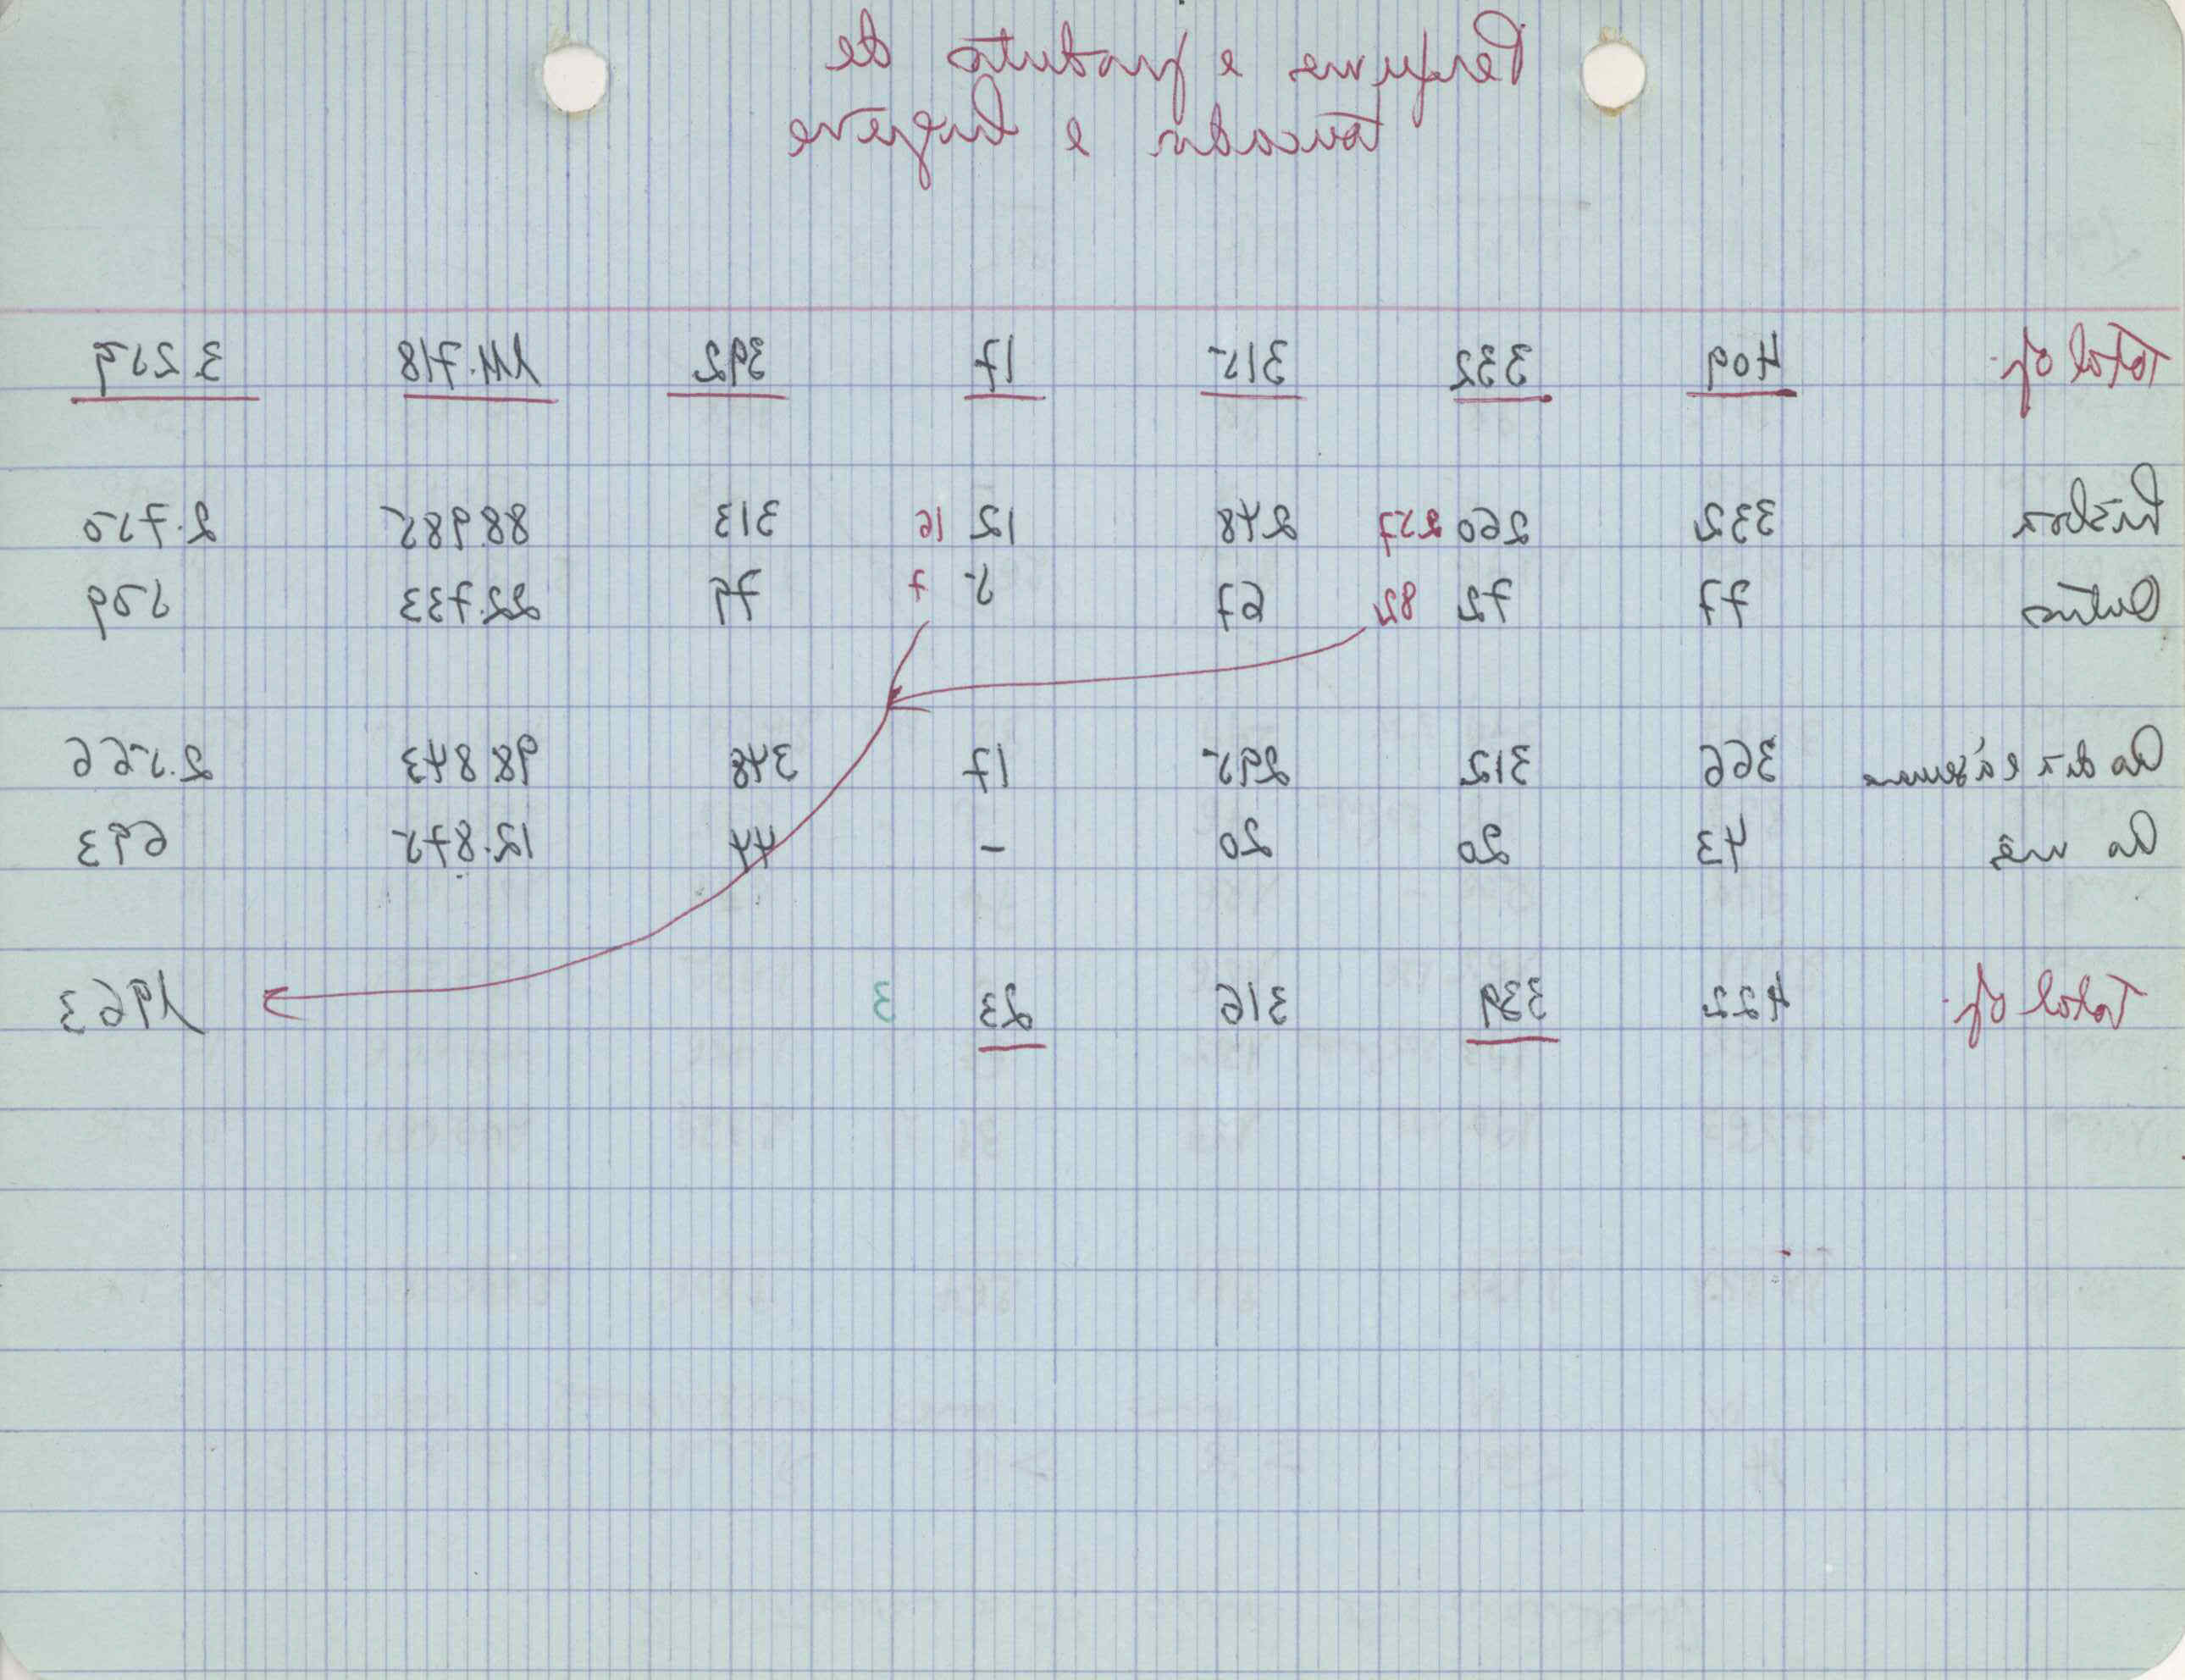 Perfumes e produtos de
toucador e higiene
Total of. 409 332 315 17 392 111.718 3.259
Lisboa 332 260 257 248 12 16 313 88.985 2.750
Outros 77 72 82 67 5 7 79 22.733 509
Ao dia e à semana 366 312 295 17 348 98.843 2.566
Ao mês 43 20 20 - 44 12.875 693
Total of. 422 339 316 23 3 1963